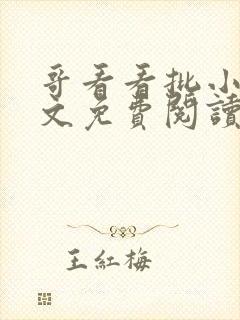 哥看看批小
文免費閱讀
王紅梅